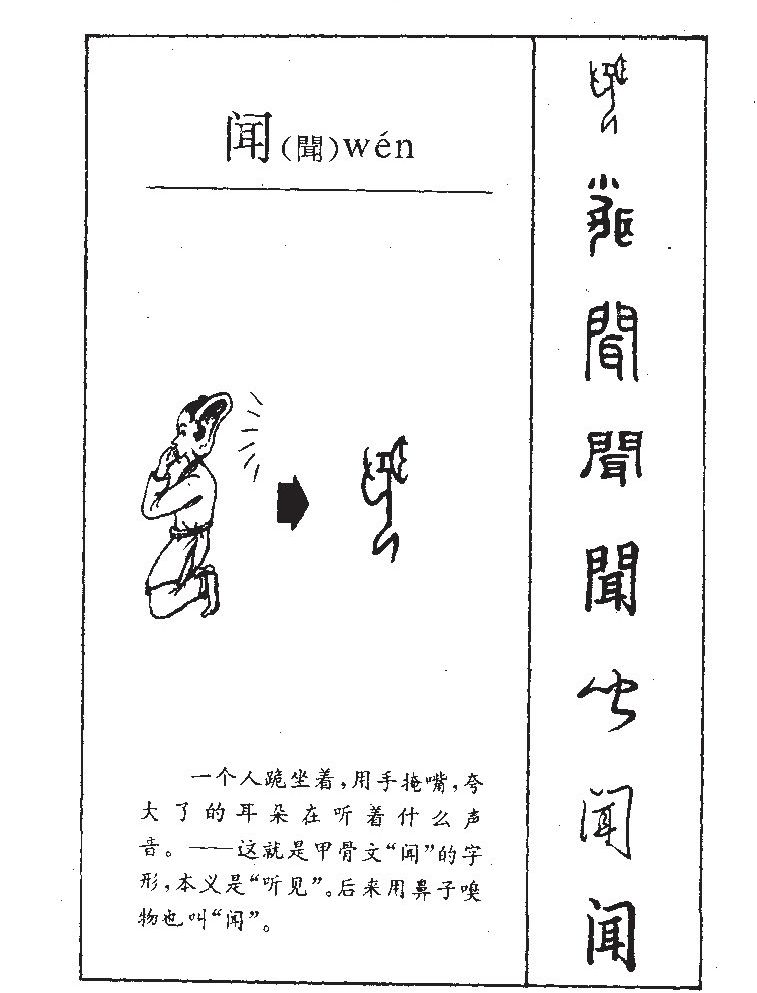 闻(聞)wén
一个人跪坐着，用手掩嘴，夸
大了的耳朵在听着什么声
音。——这就是甲骨文“闻”的字
形，本义是“听见”。后来用鼻子嗅
物也叫“闻”。
聞
聞
聞
闻
闻